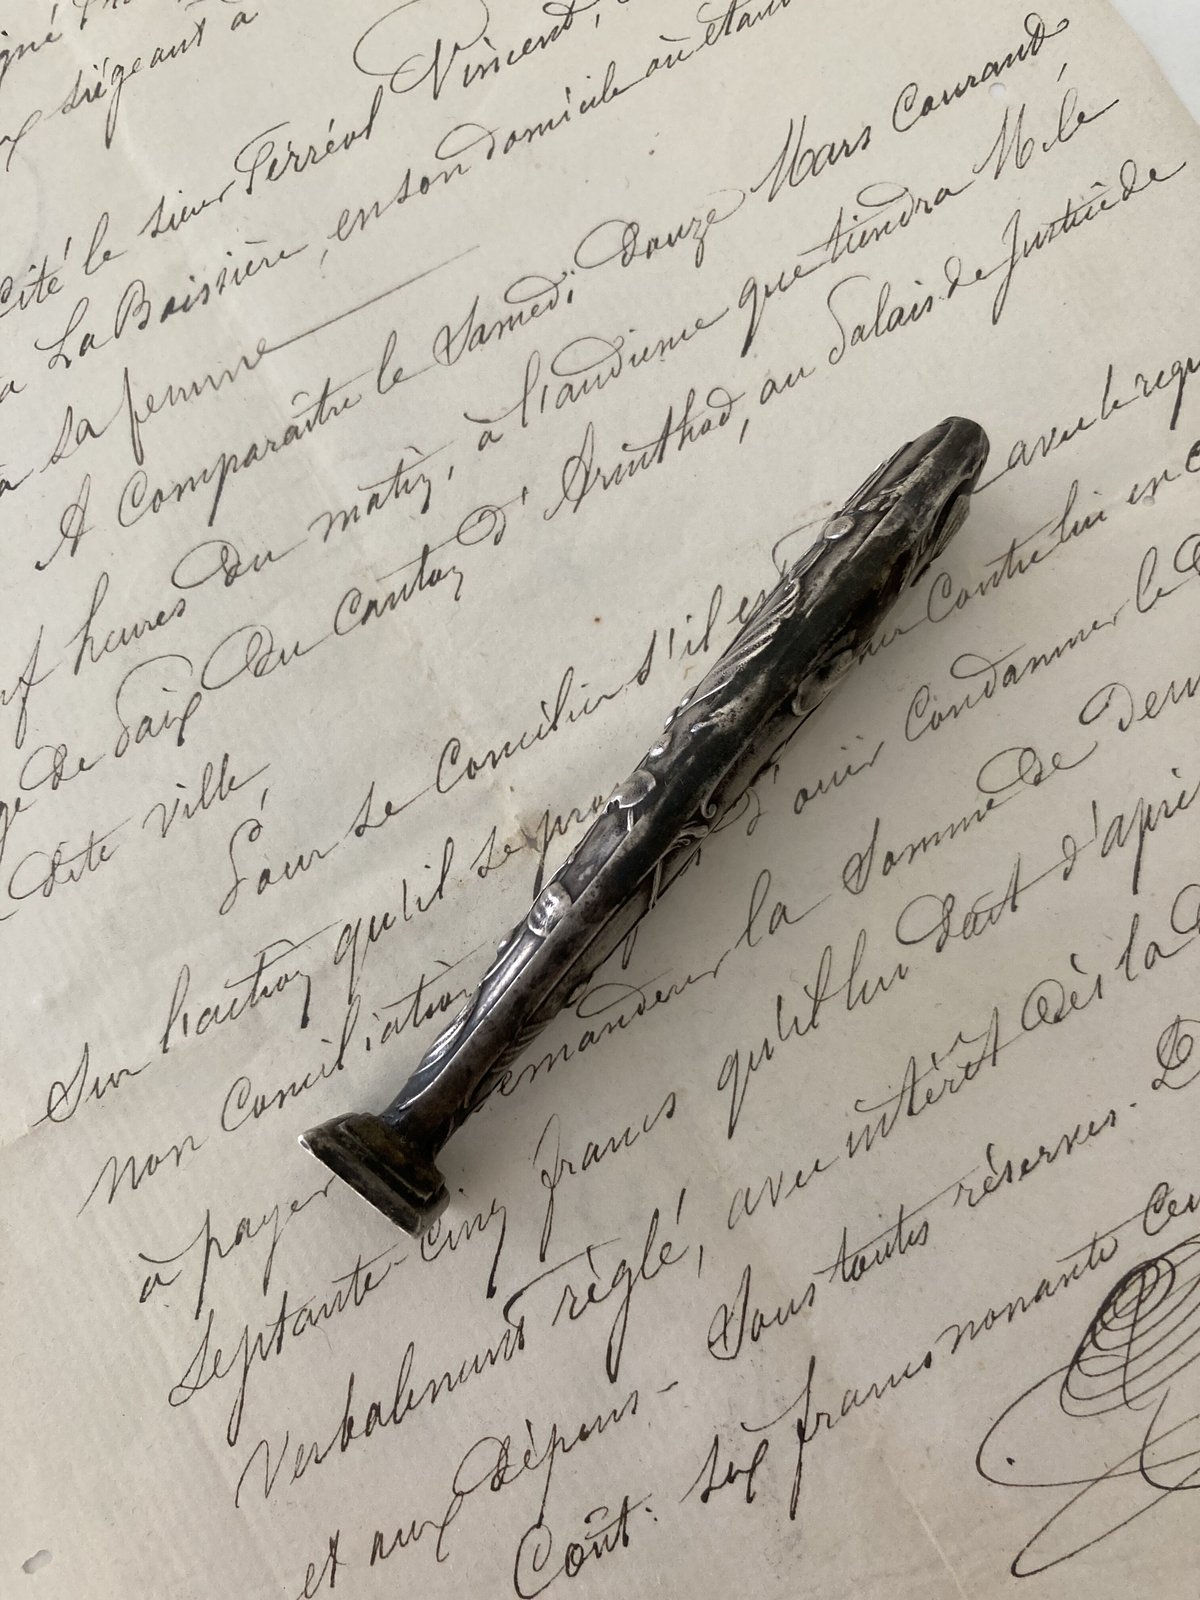 siégeant à
Cité le sieur Ferréol Vincent,
à La Boissière, en son domicile où étant
à sa femme
A Comparaître le Samedi douze Mars Courant,
heures du matin, à l'audience que tiendra M. le
de Paix du Canton d'Arinthod, au Palais de Justice de
dite ville,
Pour se Concilier s'il est avec le
Sur l'action qu'il se Contre lui en
non Conciliation d'ouïr Condamner le
à payer la Somme de
Septante-Cinq francs qu'il lui doit d'après
Verbalement réglé, avec intérêt dès la
et aux dépens - Sous toutes réserves.
Coût: six francs nonante